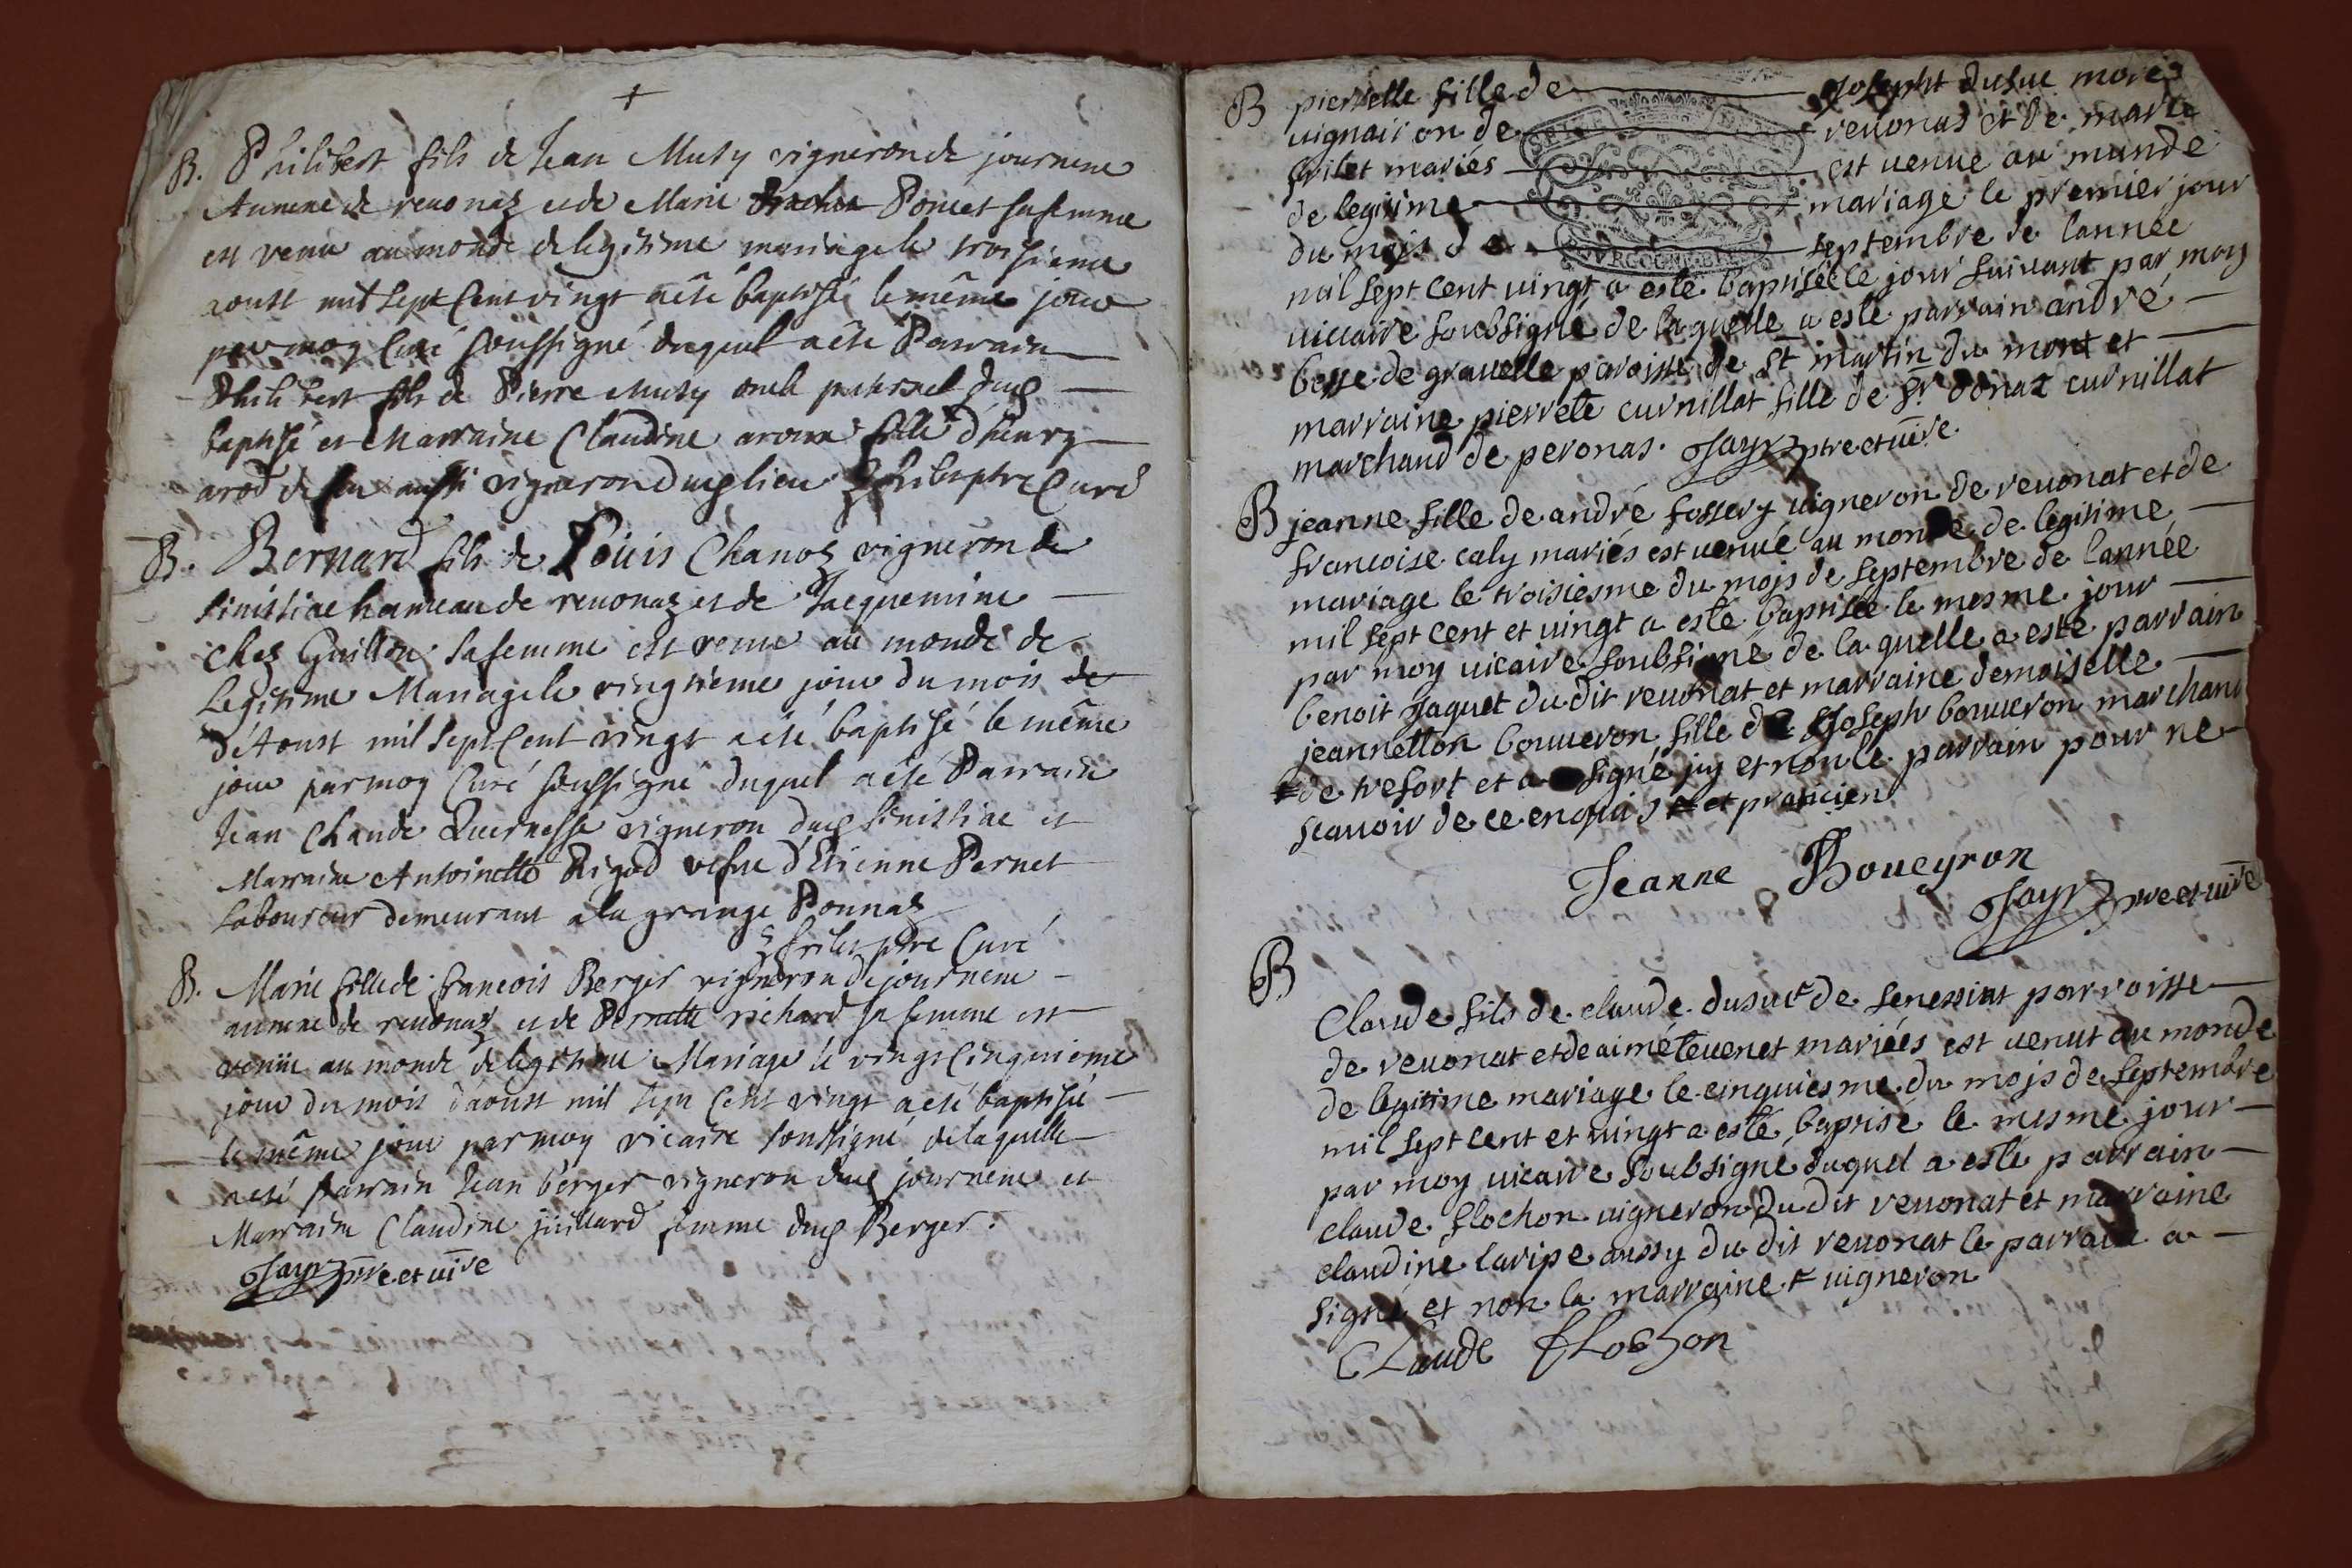 +
B. Philibert fils de Jean Muty vigneron de journene
Annexe de reuonaz et de Marie Poncet sa femme
est venu au monde de legitime mariage le troisieme
aoust mil sept Cent vingt a eté baptisé le même jour
par moy Curé soussigné duquel a eté Parrain
Philibert fils de Pierre Muty oncle paternel dud
baptisé et Marraine Claudine fille d'heury
aussi vigneron dud lieu Curé
B. Bernard fils de Loüis Chanoz vigneron de
sinissiac hameau de reuonaz et de Jacquemine
chez Guillon sa femme est venu au monde de
Legitime Mariage le vingtieme jour du mois de
d'Aoust mil sept Cent vingt a eté baptisé le même
jour par moy Curé soussigné duquel a eté Parrain
Jean Claude Quernesse vigneron dud sinissiac et
Marraine Antoinette Rigod vefue d'Etienne Pernet
Laboureur demeurant a la grange Ponnaz
frilet ptre Curé
B. Marie fille de francois Berger vigneron de journene
annexe de reuonaz et de Pernette richard sa femme est
venüe au monde de legitime Mariage le vingt Cinquieme
jour du mois d'aoust mil sept Cent vingt a eté baptisé
le même jour par moy vicaire soussigné de laquelle
a eté parrain Jean berger vigneron dud journene et
Marraine Claudine juillard femme dud Berger.
Jayr ptre et vire
B pierrette fille de Josepht dusuc mores
uignairon de reuonas et de marie
frilet mariés est uenue au munde
de legitime mariage le premier jour
du mojs de septembre de lannée
mil sept cent uingt a esté baptisée le jour suiuant par moy
uiccaire soubsigné de laquelle a esté parrain andré
besse de grauelle paroisse de st martin du mont et
marraine pierrete curnillat fille de Sr. donat curnillat
marchand de peronas. Jayr ptre et vire
B jeanne fille de andré fossery uigneron de reuonat et de
francoise caly mariés est uenue au monde de legitime
mariage le troisiesme du mojs de septembre de lannée
mil sept cent et uingt a esté baptisée le mesme jour
par moy uicaire soubsigné de la quelle a esté parrain
benoit Jaquet du dit reuonat et marraine demoiselle
jeannetton bouueron fille de Sr Joseph bouueron marchand
# de trefort et a signé juy et non le parrain pour ne
scauoir de ce enquis # et praticien
Jeanne Boueyron
Jayr ptre et vire
B
Claude fils de claude dusuc # de senessiat parroisse
de reuonat et de aimé teuenet mariées est uenut au monde
de legitime mariage le cinquiesme du mojs de septembre
mil sept cent et uingt a esté baptisé le mesme jour
par moy uicaire soubsigné duquel a esté parrain
claude flochon uigneron du dit reuonat et marraine
claudine laripe aussy du dit reuonat le parrain a
signé et non la marraine # uigneron
CLaude fLochon